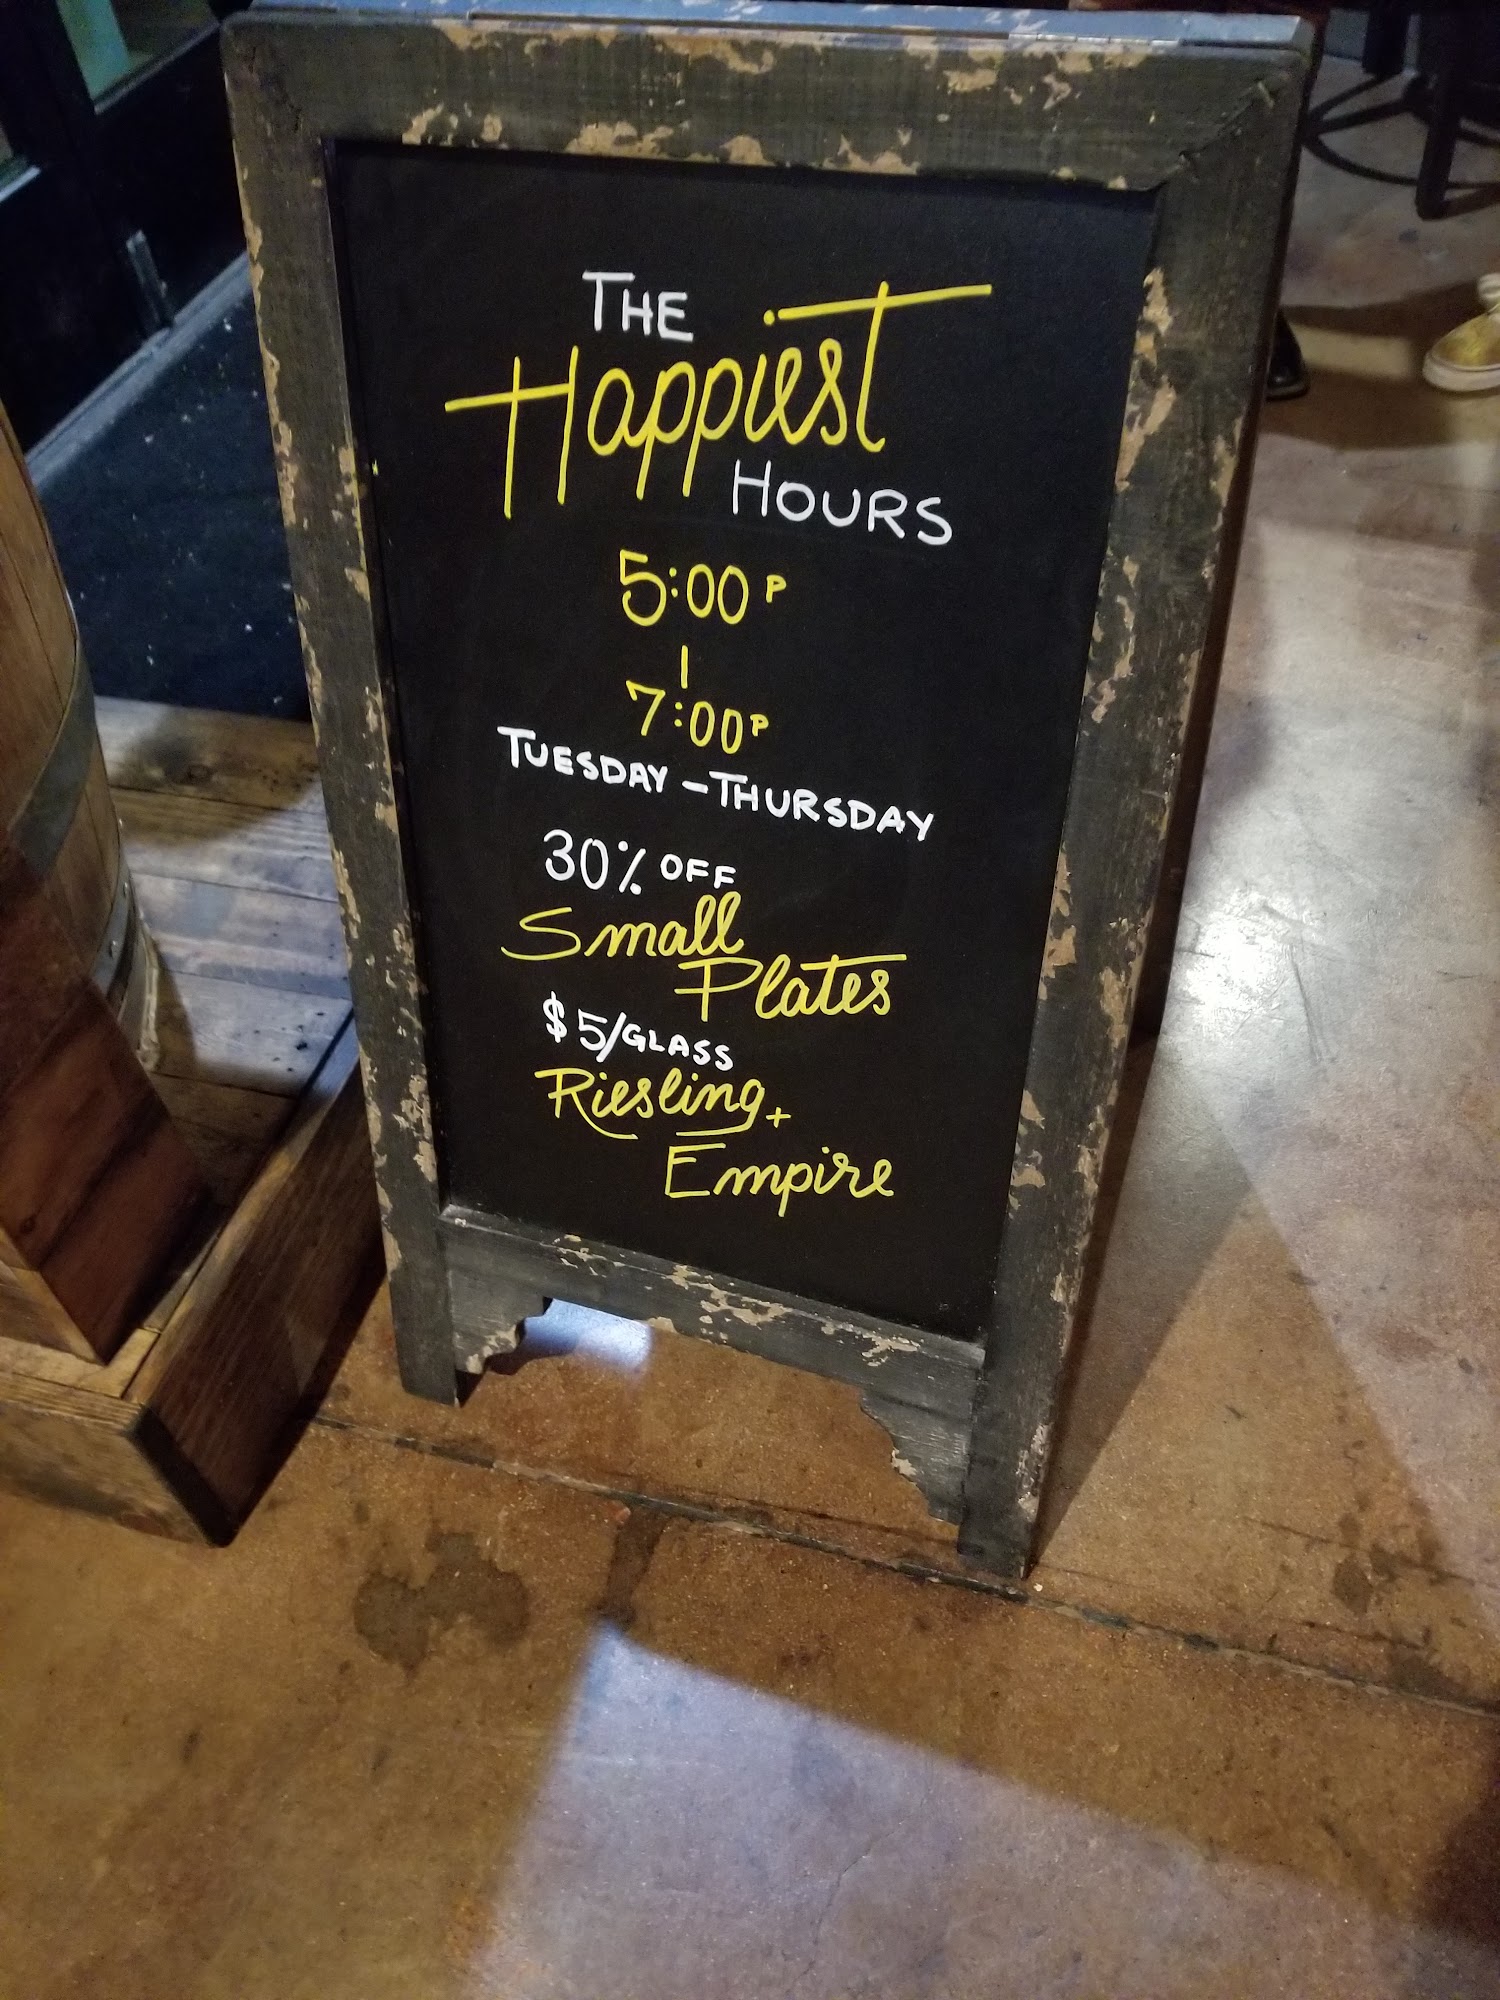 THE
Happiest
HOURS
5:00 P
|
7:00 P
TUESDAY - THURSDAY
30% OFF
Small
Plates
$5/GLASS
Riesling +
Empire